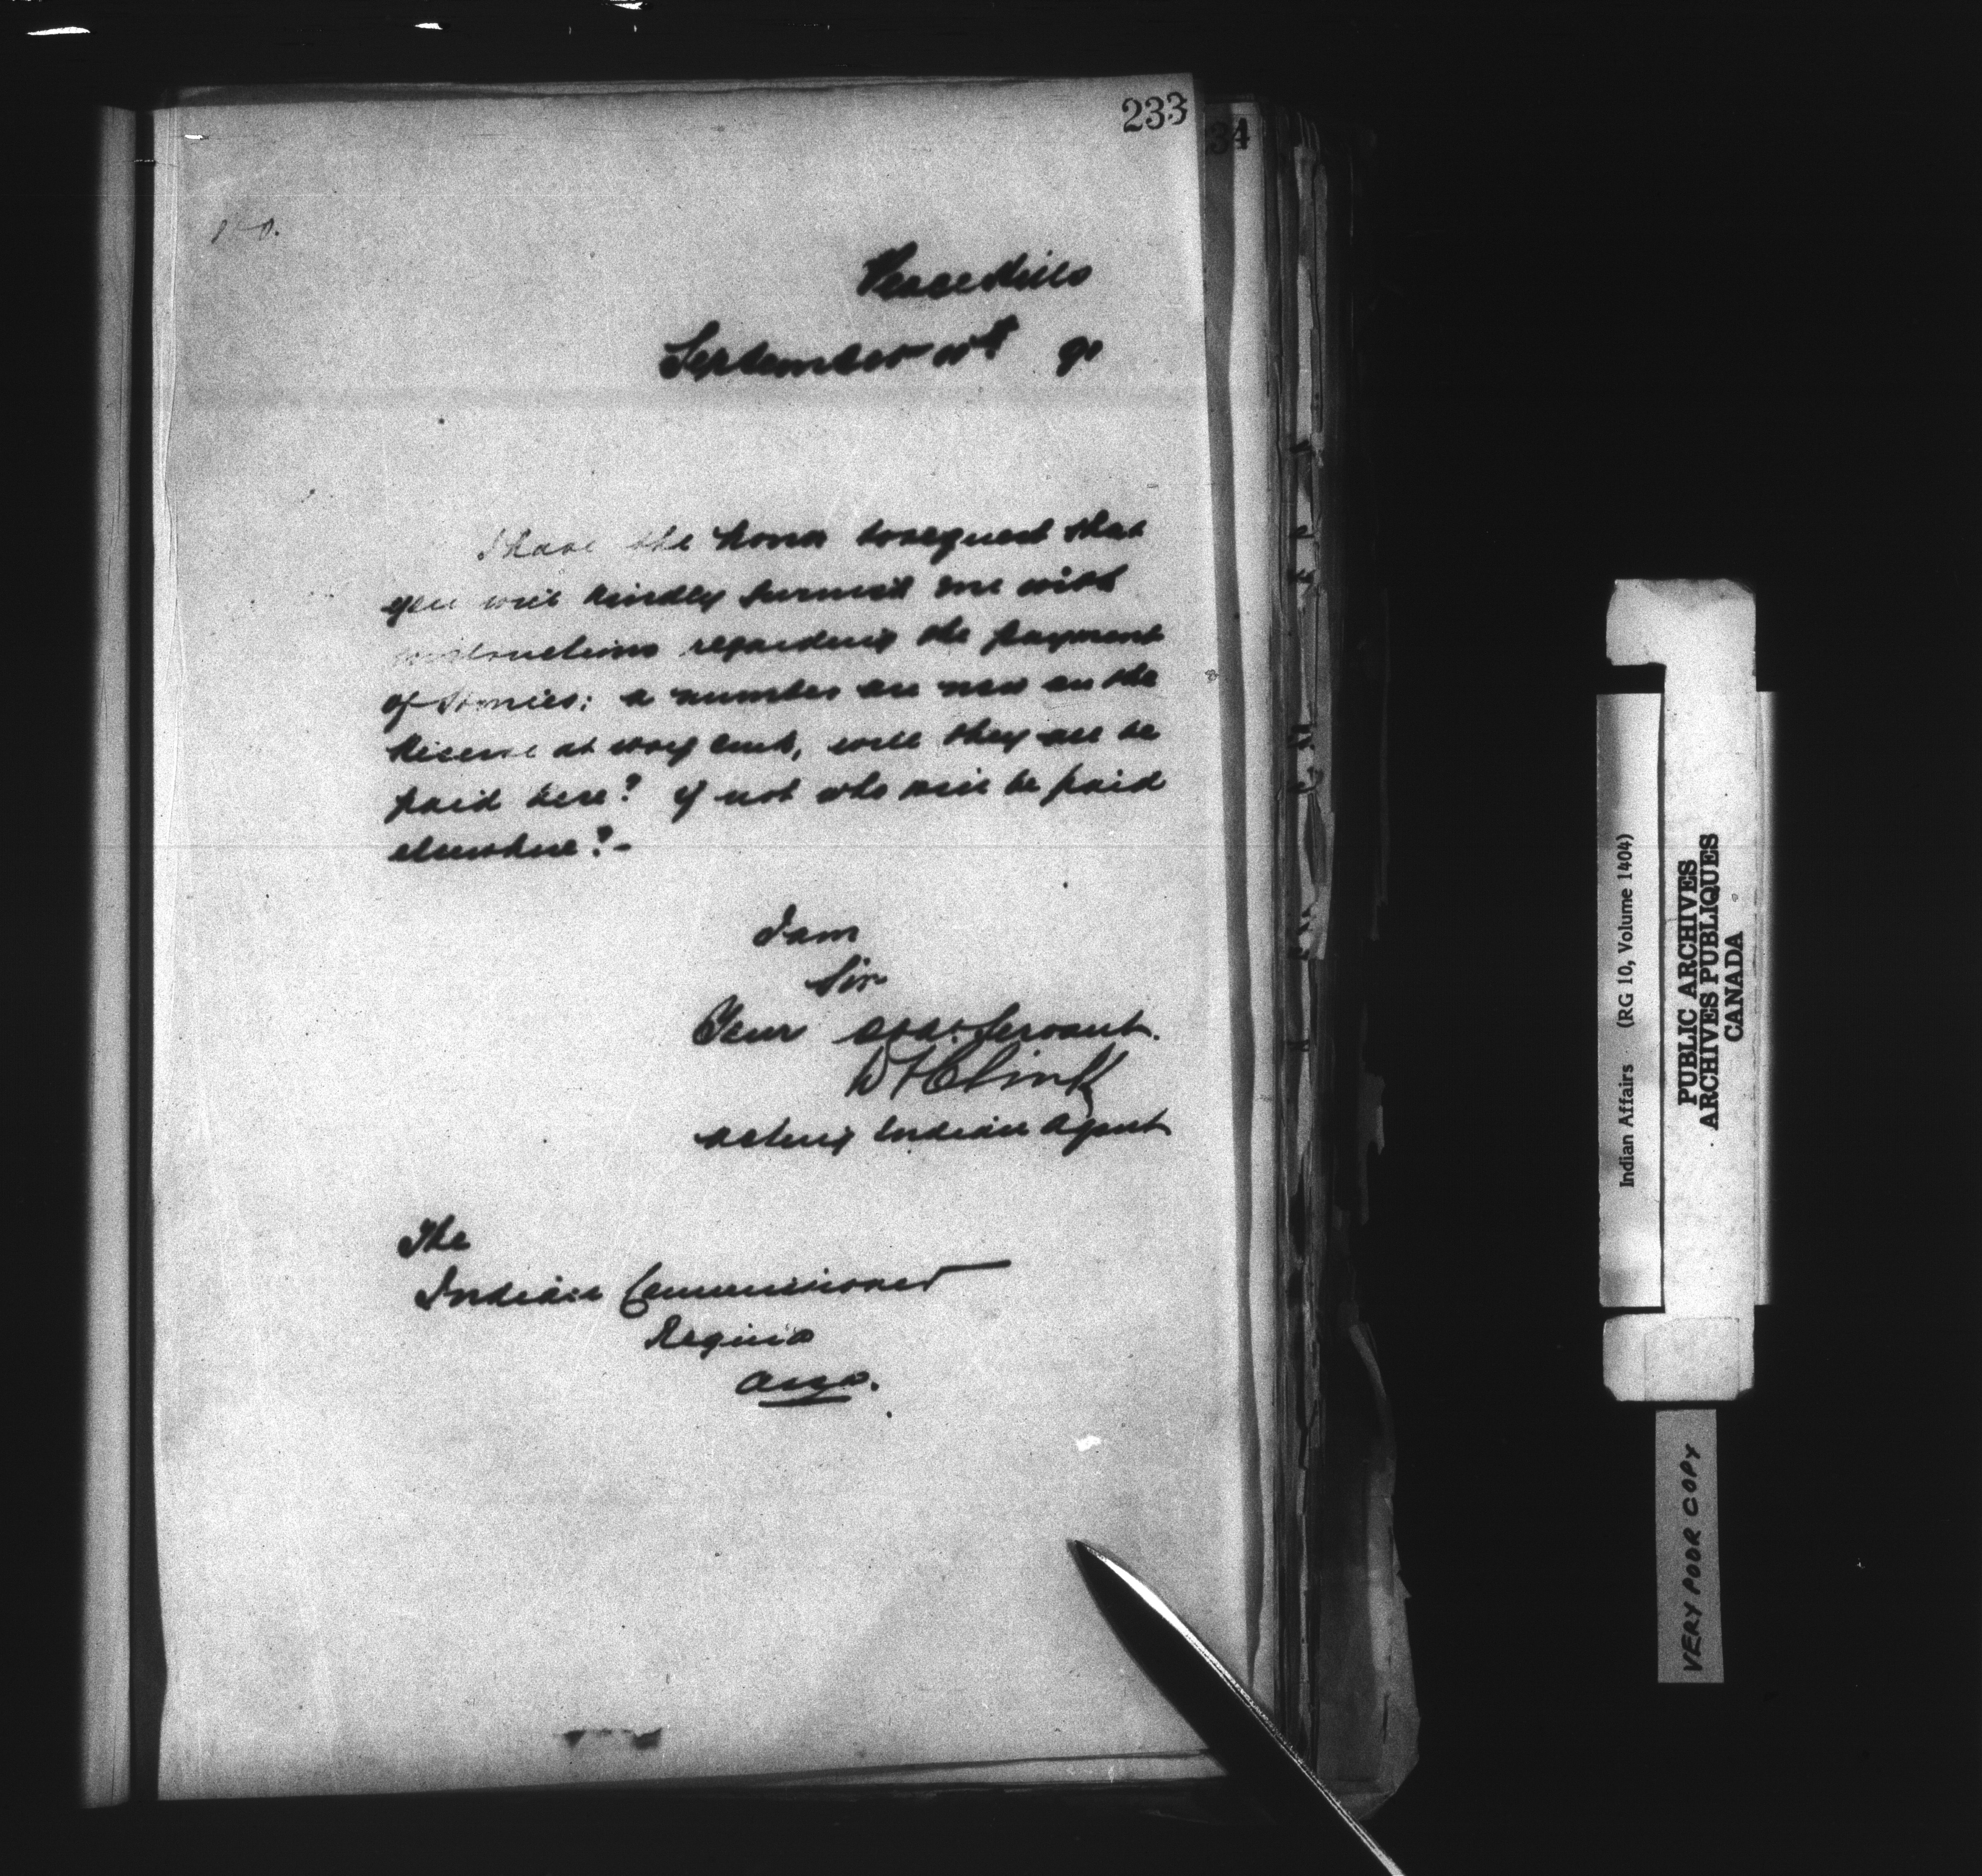 233
34
Peace Hills
September 90
I have the honor to request that
you will kindly furnish me with
instructions regarding the payment
of Stonies: a number are now on the
Reserve at Wolf Creek, will they all be
paid here? If not who will be paid
elsewhere?-
I am
Sir
Your Obdt. Servant.
D L Clink
Acting Indian Agent
The
Indian Commissioner
Regina
Assa.
Indian Affairs (RG 10, Volume 1404)
PUBLIC ARCHIVES
ARCHIVES PUBLIQUES
CANADA
VERY POOR COPY